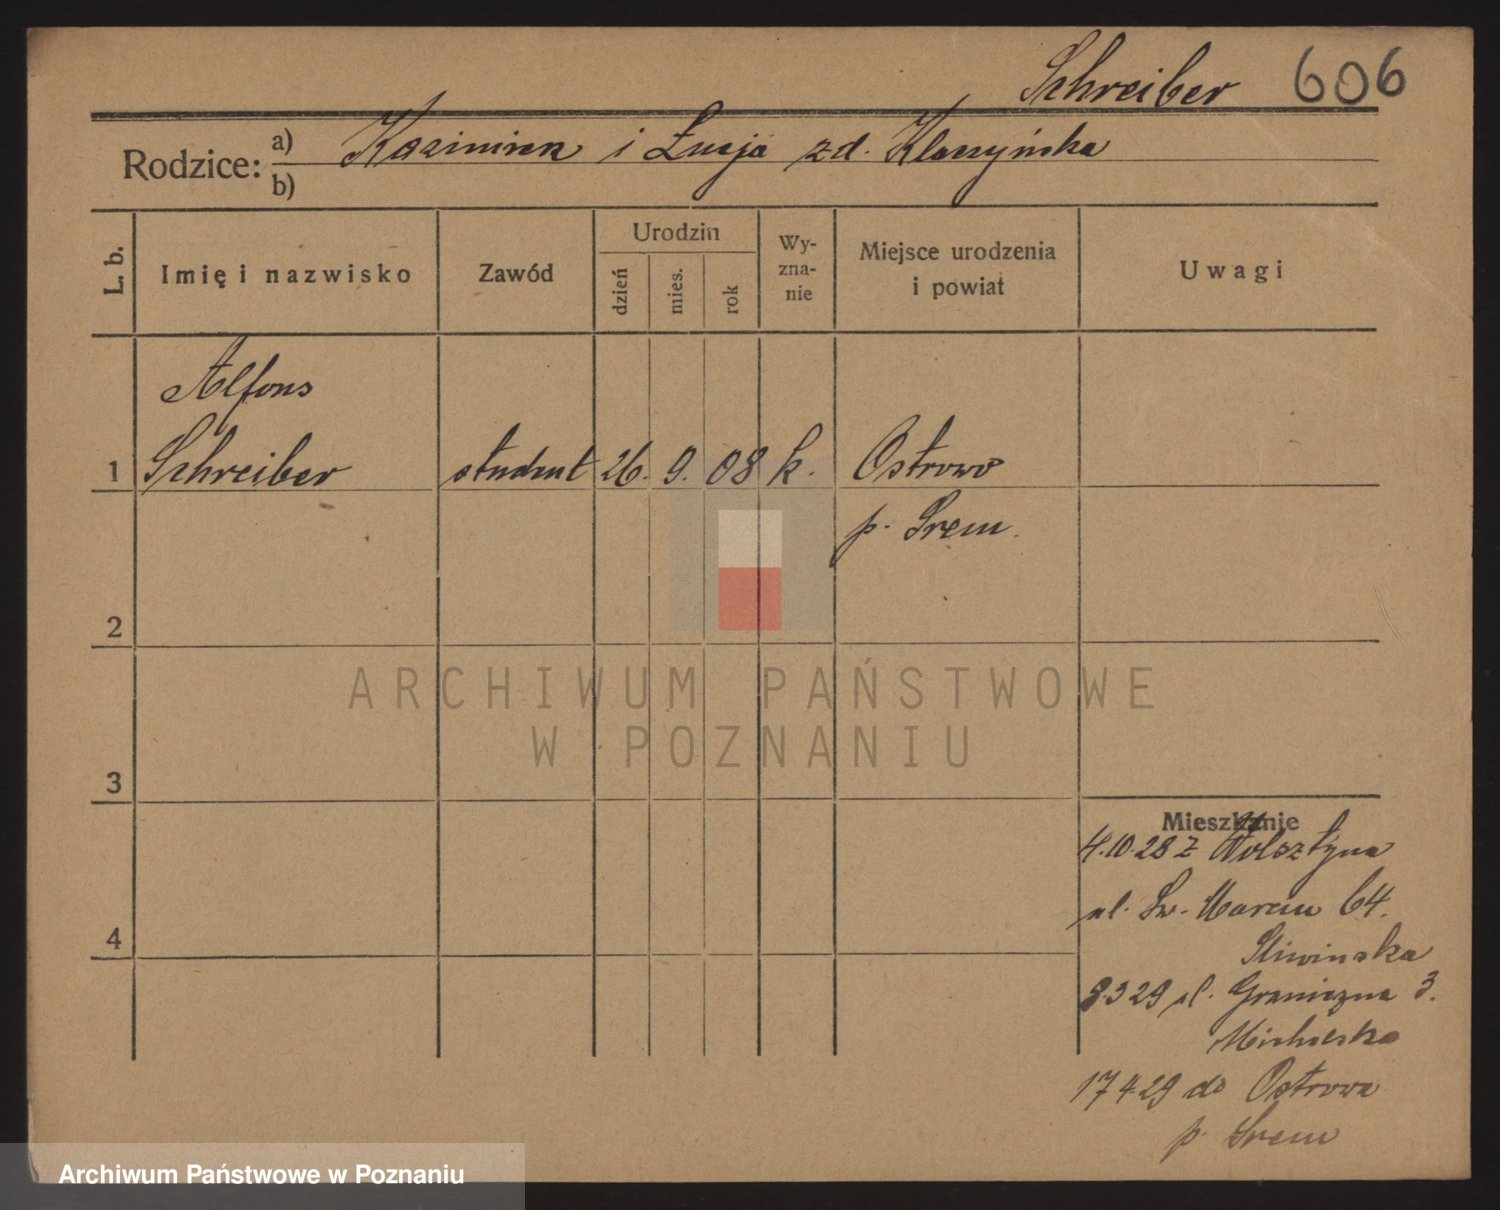 Schreiber 606
Rodzice: a) Kazimierz i Łucja zd. Klaczyńska
b)
L. b. Imię i nazwisko Zawód Urodzin dzień mies. rok Wy-zna-nie Miejsce urodzenia i powiat Uwagi
Alfons
1 Schreiber student 26. 9. 08 k. Ostrowo
p. Śrem.
2
3
4
Mieszkanie
4.10.28 z Wolsztyna
ul. Św. Marcin 64.
Śliwińska
8.3.29 ul. Graniczna 3.
17.4.29 do Ostrowa
p. Śrem
ARCHIWUM PAŃSTWOWE
W POZNANIU
Archiwum Państwowe w Poznaniu